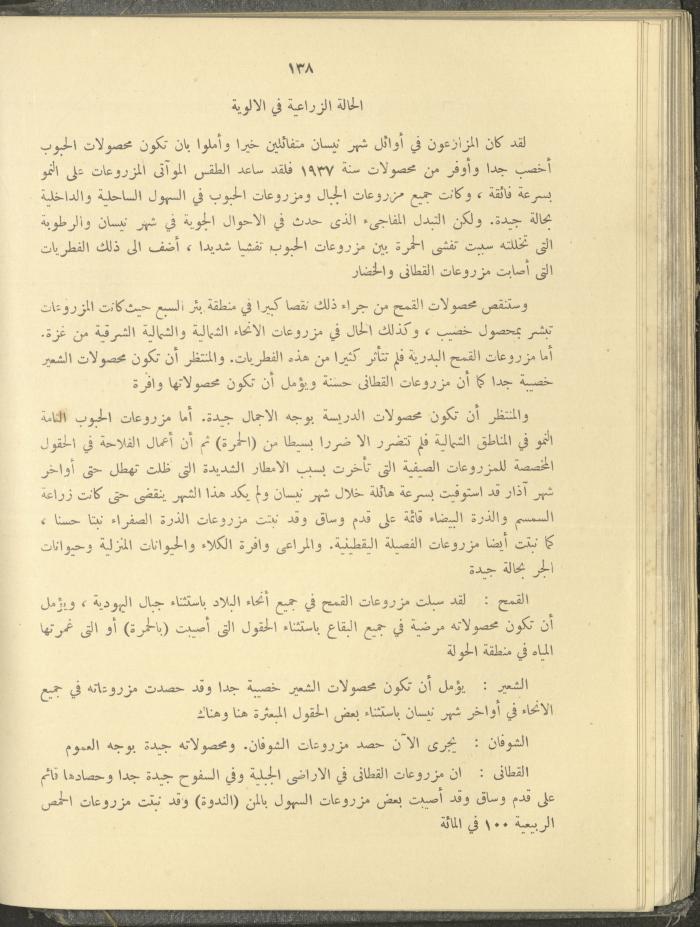 ١٣٨
الحالة الزراعية في الالوية
لقد كان المزارعون في أوائل شهر نيسان متفائلين خيرا وأملوا بان تكون محصولات الحبوب
أخصب جدا وأوفر من محصولات سنة ١٩٣٧ فلقد ساعد الطقس الموآتى المزروعات على النمو
بسرعة فائقة ، وكانت جميع مزروعات الجبال ومزروعات الحبوب في السهول الساحلية والداخلية
بحالة جيدة. ولكن التبدل المفاجىء الذى حدث في الاحوال الجوية في شهر نيسان والرطوبة
التى تخللته سببت تفشى الحمرة بين مزروعات الحبوب تفشيا شديدا ، أضف الى ذلك الفطريات
التى أصابت مزروعات القطانى والخضار
وستنقص محصولات القمح من جراء ذلك نقصا كبيرا في منطقة بئر السبع حيث كانت المزروعات
تبشر بمحصول خصيب ، وكذلك الحال في مزروعات الانحاء الشمالية والشمالية الشرقية من غزة.
أما مزروعات القمح البدرية فلم تتأثر كثيرا من هذه الفطريات. والمنتظر أن تكون محصولات الشعير
خصيبة جدا كما أن مزروعات القطانى حسنة ويؤمل أن تكون محصولاتها وافرة
والمنتظر أن تكون محصولات الدريسة بوجه الاجمال جيدة. أما مزروعات الحبوب التامة
النمو في المناطق الشمالية فلم تتضرر الا ضررا بسيطا من (الحمرة) ثم أن أعمال الفلاحة في الحقول
المخصصة للمزروعات الصيفية التى تأخرت بسبب الامطار الشديدة التى ظلت تهطل حتى أواخر
شهر آذار قد استوفيت بسرعة هائلة خلال شهر نيسان ولم يكد هذا الشهر ينقضى حتى كانت زراعة
السمسم والذرة البيضاء قائمة على قدم وساق وقد نبتت مزروعات الذرة الصفراء نبتا حسنا ،
كما نبتت أيضا مزروعات الفصيلة اليقطينية. والمراعى وافرة الكلاء والحيوانات المنزلية وحيوانات
الجر بحالة جيدة
القمح : لقد سبلت مزروعات القمح في جميع أنحاء البلاد باستثناء جبال اليهودية ، ويؤمل
أن تكون محصولاته مرضية في جميع البقاع باستثناء الحقول التى أصيبت (بالحمرة) أو التى غمرتها
المياه في منطقة الحولة
الشعير : يؤمل أن تكون محصولات الشعير خصيبة جدا وقد حصدت مزروعاته في جميع
الانحاء في أواخر شهر نيسان باستثناء بعض الحقول المبعثرة هنا وهناك
الشوفان : يجرى الآن حصد مزروعات الشوفان. ومحصولاته جيدة بوجه العموم
القطانى : ان مزروعات القطانى في الاراضى الجبلية وفي السفوح جيدة جدا وحصادها قائم
على قدم وساق وقد أصيبت بعض مزروعات السهول بالمن (الندوة) وقد نبتت مزروعات الحمص
الربيعية ١٠٠ في المائة